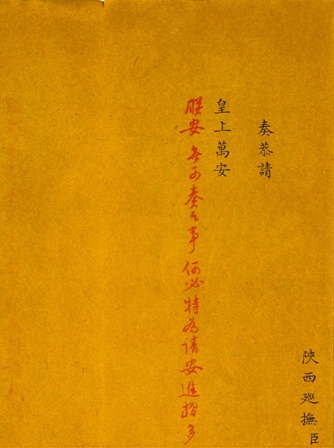 陝西廵撫臣
奏恭請
皇上萬安
朕安無可奏之事何必特為請安進摺多